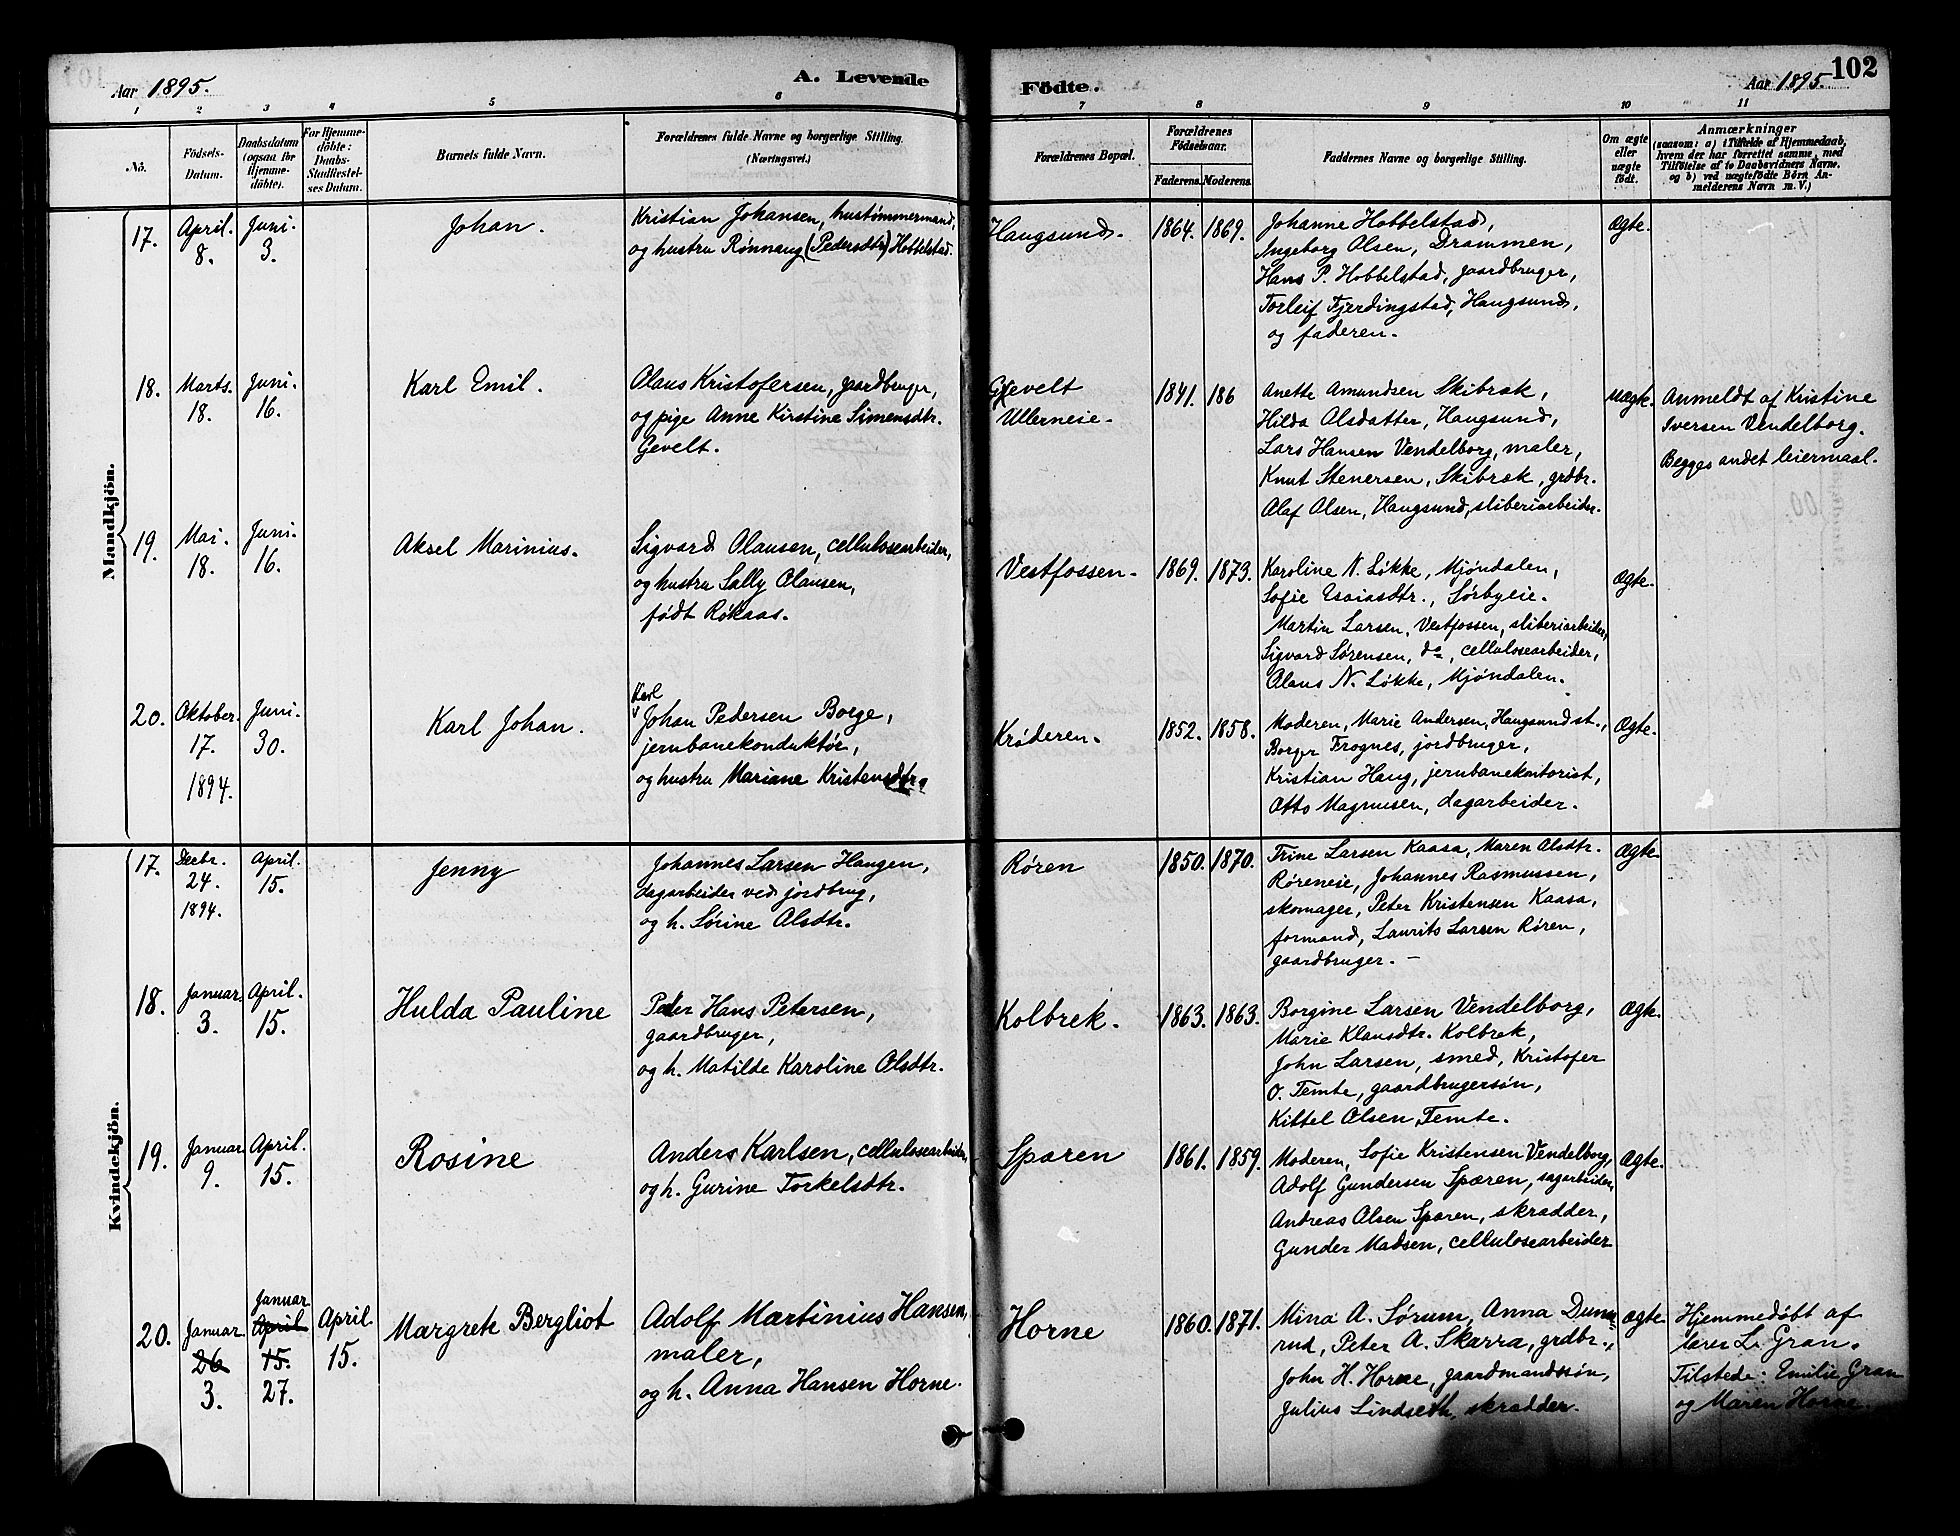 Aar 1895.
A. Levende
Födte.
Aar 1895.
102
1
2
3
4
5
6
7
8
9
10
11
No.
Födsels-
Datum.
Daabsdatum
(ogsaa for
Hjemme-
döbte).
For Hjemme-
döbte:
Daabs-
Stadfæstel-
ses Datum.
Barnets fulde Navn.
Forældrenes fulde Navne og borgerlige Stilling.
(Næringsvei.)
Forældrenes Bopæl.
Forældrenes
Födselsaar.
Faderens.
Moderens.
Faddernes Navne og borgerlige Stilling.
Om ægte
eller
uægte
födt.
Anmærkninger
(saasom: a) i Tilfælde af Hjemmedaab,
hvem der har forrettet samme, med
Tilföielse af to Daabsvidners Navne.
og b) ved uægtefödte Börn An-
melderens Navn m. V.)
Mandkjön.
17.
April.
8.
Juni.
3.
Johan.
Kristian Johansen, hustømmermand,
og hustru Rønnaug (Pedersdtr) Hobbelstad.
Haugsund.
1864.
1869.
Johanne Hobbelstad,
Ingeborg Olsen, Drammen,
Hans P. Hobbelstad, gaardbruger,
Torleif Fjerdingstad, Haugsund,
og faderen.
Ægte.
18.
Marts.
18.
Juni.
16.
Karl Emil.
Olaus Kristofersen, gaardbruger,
og pige Anne Kirstine Simensdtr.
Gevelt.
Gevelt
Ullerneie.
1841.
186
Anette Amundsen Skibrak,
Hilda Olsdatter, Haugsund,
Lars Hansen Vendelborg, maler,
Knut Stenersen, Skibrak, grdbr.
Olaf Olsen, Haugsund, sliberiarbeider.
Uægte.
Anmeldt af Kristine
Iversen Vendelborg.
Begges andet leiermaal.
19.
Mai.
18.
Juni.
16.
Aksel Marinius.
Sigvard Olausen, cellulosearbeider,
og hustru Sally Olausen,
født Røkaas.
Vestfossen.
1869.
1873.
Karoline N. Løkke, Mjøndalen,
Sofie Esaiasdtr., Sørbyeie.
Martin Larsen, Vestfossen, sliberiarbeider,
Sigvard Sørensen, do, cellulosearbeider,
Olaus N. Løkke, Mjøndalen.
Ægte.
20.
Oktober.
17.
1894.
Juni.
30.
Karl Johan.
Karl
Johan Pedersen Borge,
jernbanekonduktør,
og hustru Mariane Kristensdtr.
Krøderen.
1852.
1858.
Moderen, Marie Andersen, Haugsund st.,
Borger Frognes, jordbruger,
Kristian Haug, jernbanekontorist,
Otto Magnusen, dagarbeider.
Ægte.
Kvindekjön.
17.
Decbr.
24.
1894.
April.
15.
Jenny
Johannes Larsen Haugen,
dagarbeider ved jordbrug,
og h. Sørine Olsdtr.
Røren
1850.
1870.
Trine Larsen Kaasa, Maren Olsdtr.
Røreneie, Johannes Rasmussen,
skomager, Peter Kristensen Kaasa,
formand, Laurits Larsen Røren,
gaardbruger.
Ægte.
18.
Januar.
3.
April.
15.
Hulda Pauline
Peder Hans Petersen,
gaardbruger,
og h. Matilde Karoline Olsdtr.
Kolbrek.
1863.
1863.
Borgine Larsen Vendelborg,
Marie Klausdtr. Kolbrek,
John Larsen, smed, Kristofer
O. Temte, gaardbrugersøn,
Kittel Olsen Temte.
Ægte.
19.
Januar
9.
April.
15.
Rosine
Anders Karlsen, cellulosearbeider,
og h. Gurine Torkelsdtr.
Sparen
1861.
1859.
Moderen, Sofie Kristensen Vendelborg,
Adolf Gundersen Spæren, sagarbeider,
Andreas Olsen Sparen, skrædder,
Gunder Madsen, cellulosearbeider
Ægte.
20.
Januar
26
3.
Januar
April
15.
27.
April
15.
Margrete Bergliot
Adolf Martinius Hansen,
maler,
og h. Anna Hansen Horne.
Horne
1860.
1871.
Mina A. Sørum, Anna Dunse-
rud, Peter A. Skarra, grdbr.,
John H. Horne, gaardmandssøn,
Julius Lindseth, skrædder.
Ægte
Hjemmedøbt af
lærer L. Gran.
Tilstede: Emilie Gran
og Maren Horne.